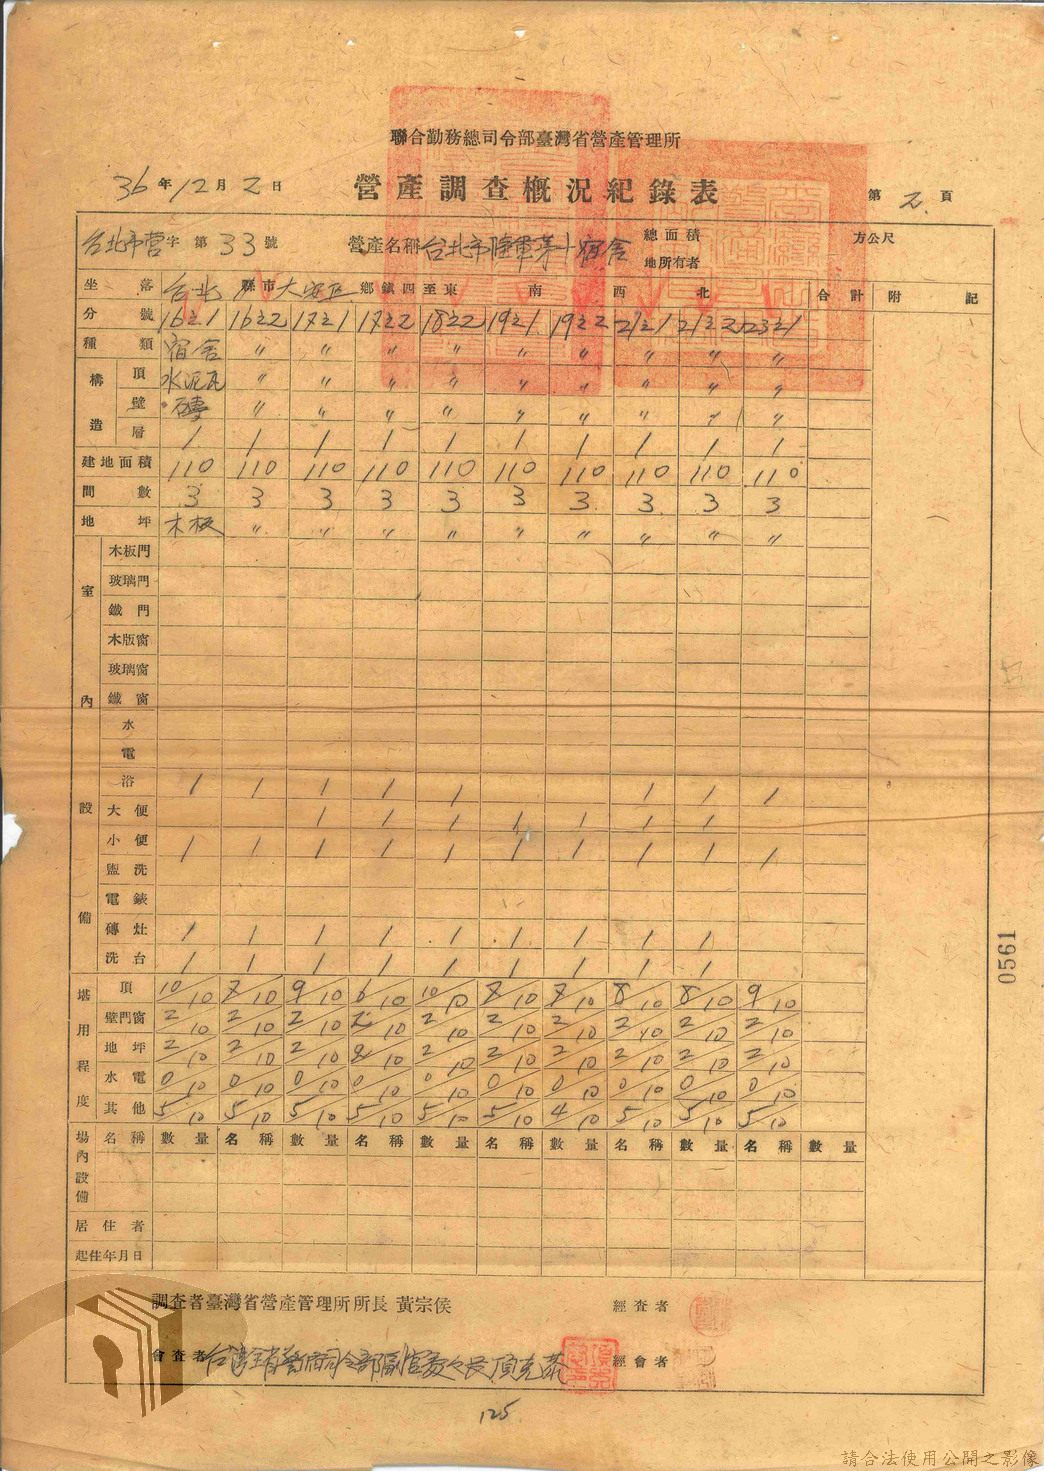 聯合勤務總司令部臺灣省營產管理所
36年12月2日 營產調查概況紀錄表 第2頁
台北市營字第33號 營產名稱 台北市陸軍第十宿舍 總面積 方公尺
地所有者
坐落 台北 縣市 大安區 鄉鎮四至東 南 西 北 合計 附記
分號 16之1 16之2 17之1 17之2 18之2 19之1 19之2 21之1 21之2 23之1
種類 宿舍 〃 〃 〃 〃 〃 〃 〃 〃 〃
構造 頂 水泥瓦 〃 〃 〃 〃 〃 〃 〃 〃 〃
壁 磚 〃 〃 〃 〃 〃 〃 〃 〃 〃
層 1 1 1 1 1 1 1 1 1 1
建地面積 110 110 110 110 110 110 110 110 110 110
間數 3 3 3 3 3 3 3 3 3 3
地坪 木板 〃 〃 〃 〃 〃 〃 〃 〃 〃
室內設備 木板門
玻璃門
鐵門
木版窗
玻璃窗
鐵窗
水
電
浴 1 1 1 1 1 1 1 1
大便 1 1 1 1 1 1 1
小便 1 1 1 1 1 1 1 1 1 1
盥洗
電錶
磚灶 1 1 1 1 1 1 1 1 1
洗台 1 1 1 1 1 1 1 1 1
堪用程度 頂 10/10 8/10 9/10 6/10 10/10 8/10 8/10 8/10 8/10 9/10
壁門窗 2/10 2/10 2/10 2/10 2/10 2/10 2/10 2/10 2/10 2/10
地坪 2/10 2/10 2/10 2/10 2/10 2/10 2/10 2/10 2/10 2/10
水電 0/10 0/10 0/10 0/10 0/10 0/10 0/10 0/10 0/10 0/10
其他 5/10 5/10 5/10 5/10 5/10 5/10 4/10 5/10 5/10 5/10
場內設備 名稱 數量 名稱 數量 名稱 數量 名稱 數量 名稱 數量 名稱 數量
居住者
起住年月日
調查者臺灣省營產管理所所長 黃宗侯 經查者
會查者 台灣全省警備司令部副官處處長 項克恭 經會者
125
0561
請合法使用公開之影像